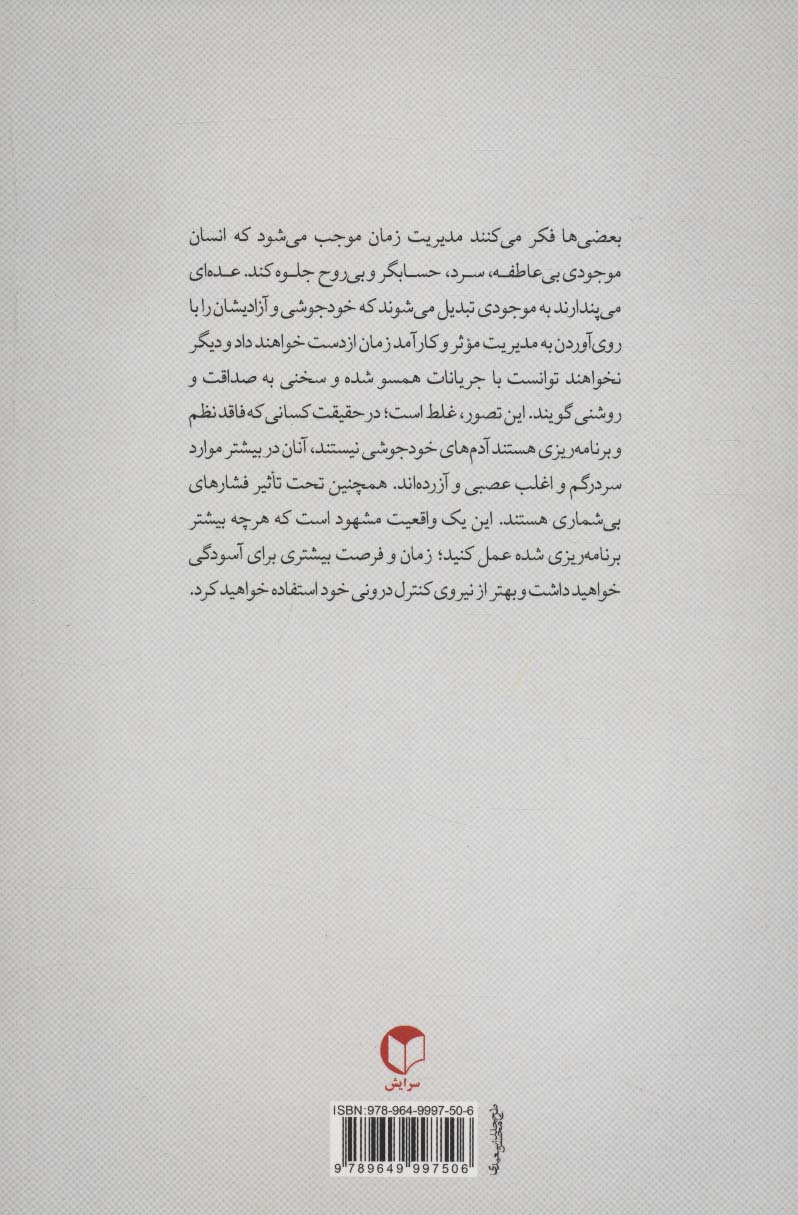 بعضی‌ها فکر می‌کنند مدیریت زمان موجب می‌شود که انسان
موجودی بی‌عاطفه، سرد، حسابگر و بی‌روح جلوه کند. عده‌ای
می‌پندارند به موجودی تبدیل می‌شوند که خودجوشی و آزادیشان را با
روی‌آوردن به مدیریت مؤثر و کارآمد زمان ازدست خواهند داد و دیگر
نخواهند توانست با جریانات همسو شده و سخنی به صداقت و
روشنی گویند. این تصور، غلط است؛ در حقیقت کسانی که فاقد نظم
و برنامه‌ریزی هستند آدم‌های خودجوشی نیستند، آنان در بیشتر موارد
سردرگم و اغلب عصبی و آزرده‌اند. همچنین تحت تأثیر فشارهای
بی‌شماری هستند. این یک واقعیت مشهود است که هرچه بیشتر
برنامه‌ریزی شده عمل کنید؛ زمان و فرصت بیشتری برای آسودگی
خواهید داشت و بهتر از نیروی کنترل درونی خود استفاده خواهید کرد.
سرایش
ISBN:978-964-9997-50-6
9 789649 997506
طرح جلد: محسن سعیدی